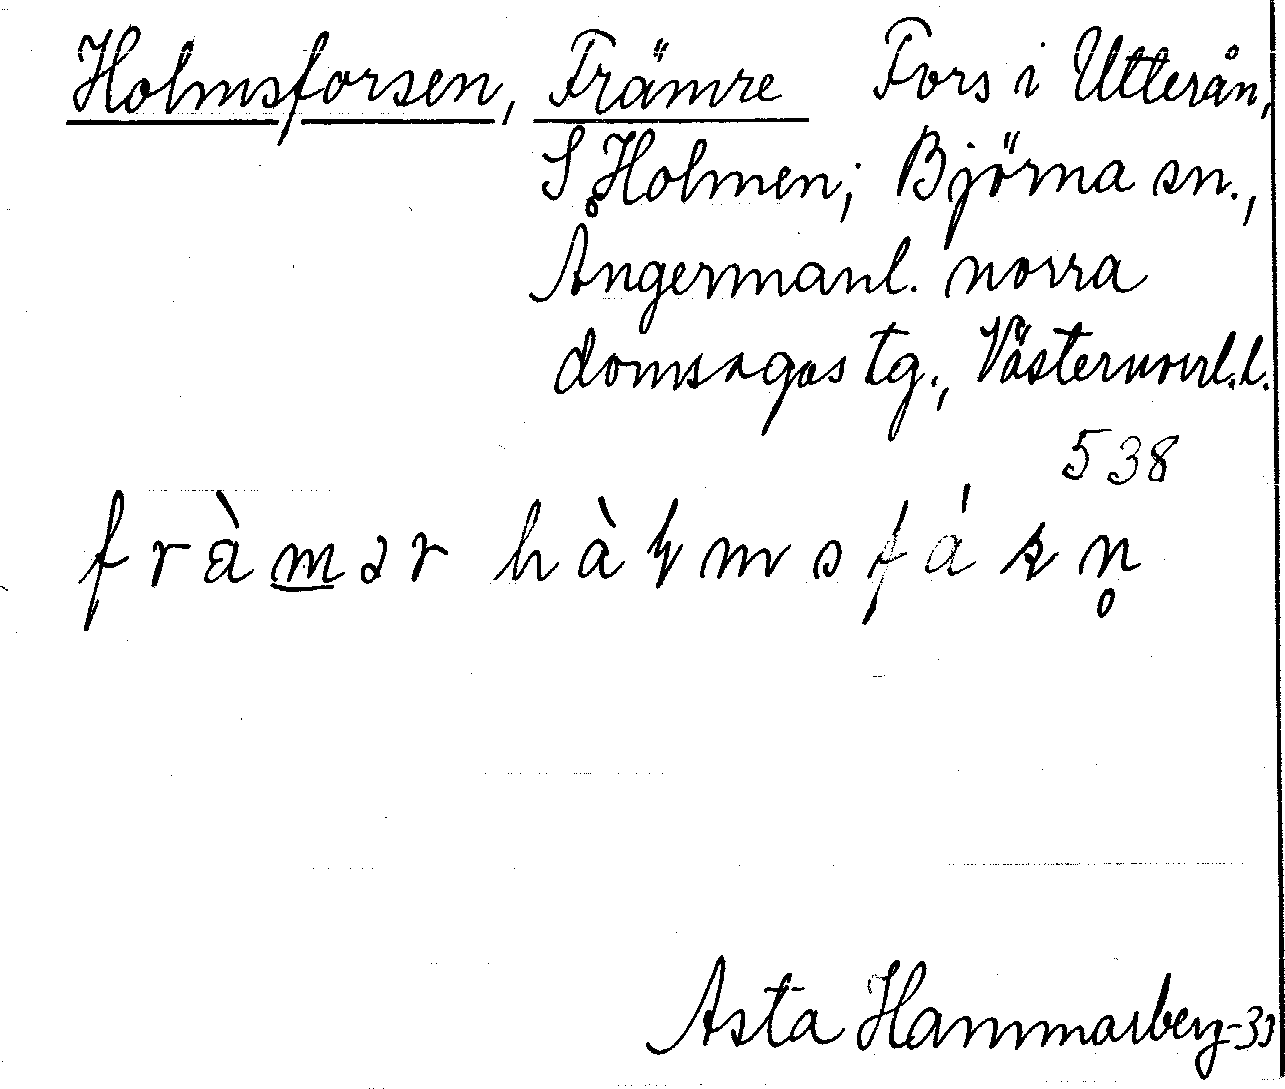 Holmsforsen, Främre Fors i Utterån,
S Holmen; Björna sn.,
Ångermanl. norra
domsagas tg., Västernorrl.l.
538
Asta Hammarberg-33